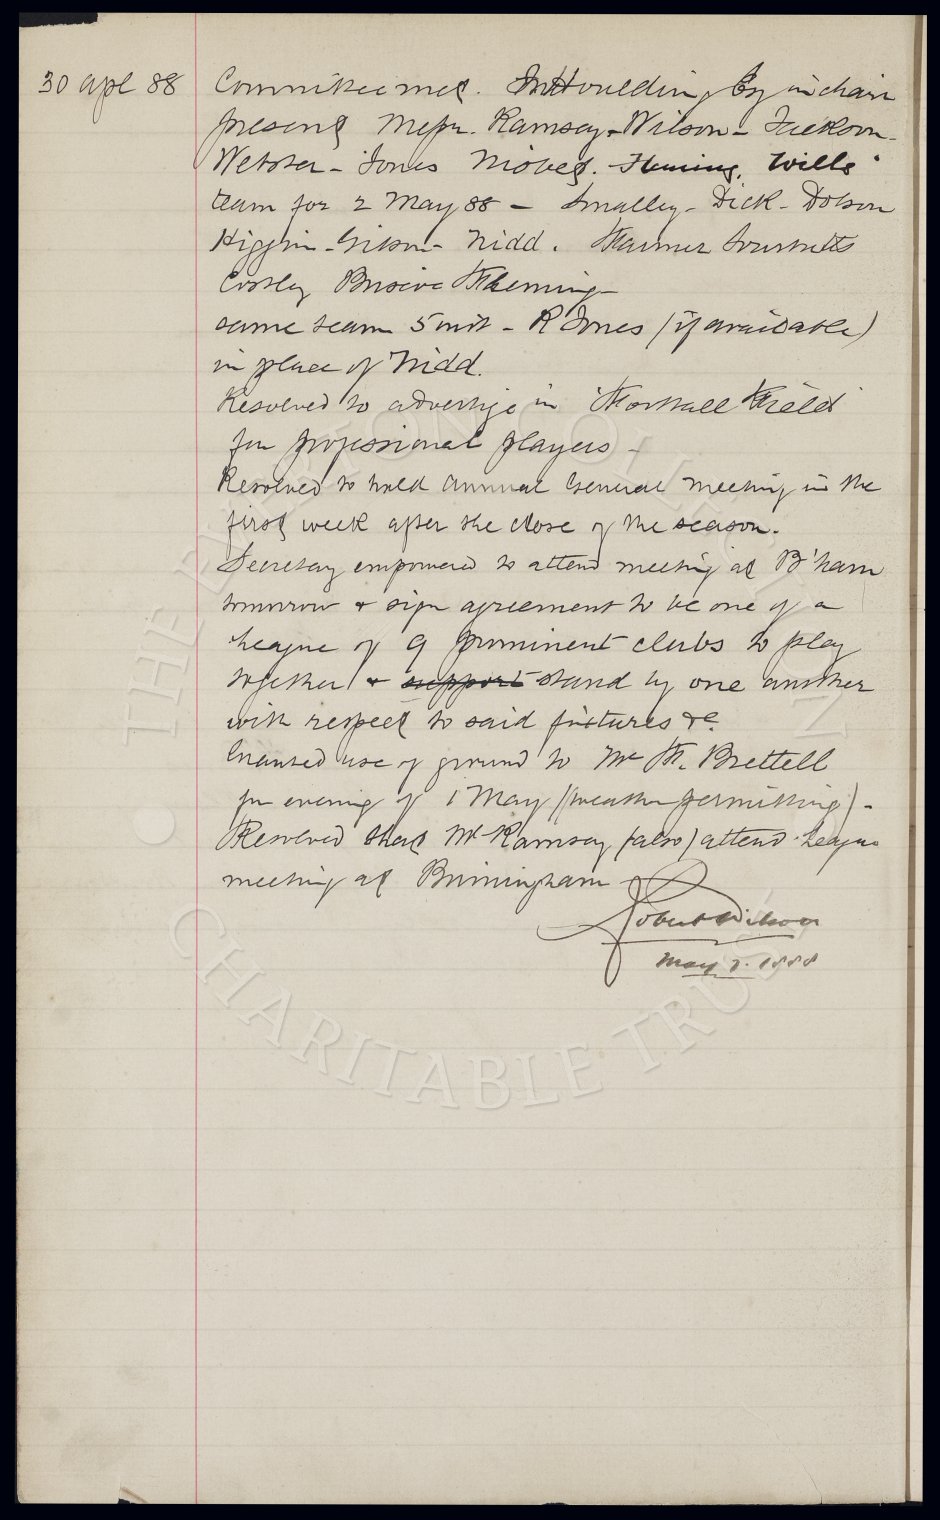 30 Apl 88 Committee met. Jn Houlding Esq in chair
present Messrs. Ramsay - Wilson - Jackson -
Webster - Jones Nisbet. Fleming. Wills
team for 2 May 88 - Smalley - Dick - Dobson
Higgin - Gibson - Nidd. Farmer
Costley Fleming -
same team 5 inst - R Jones (if available)
in place of Nidd.
Resolved to advertise in Football Field
for professional players -
Resolved to hold Annual General Meeting in the
first week after the close of the season.
Secretary empowered to attend meeting at B'ham
tomorrow & sign agreement to be one of a
League of 9 prominent clubs to play
together & support stand by one another
with respect to said fixtures &c
Granted use of ground to Mr F. Brettell
for evening of 1 May (weather permitting) -
Resolved that Mr Ramsay (also) attend League
meeting at Birmingham
Robert Wilson
May 1888
THE EVERTON COLLECTION
CHARITABLE TRUST